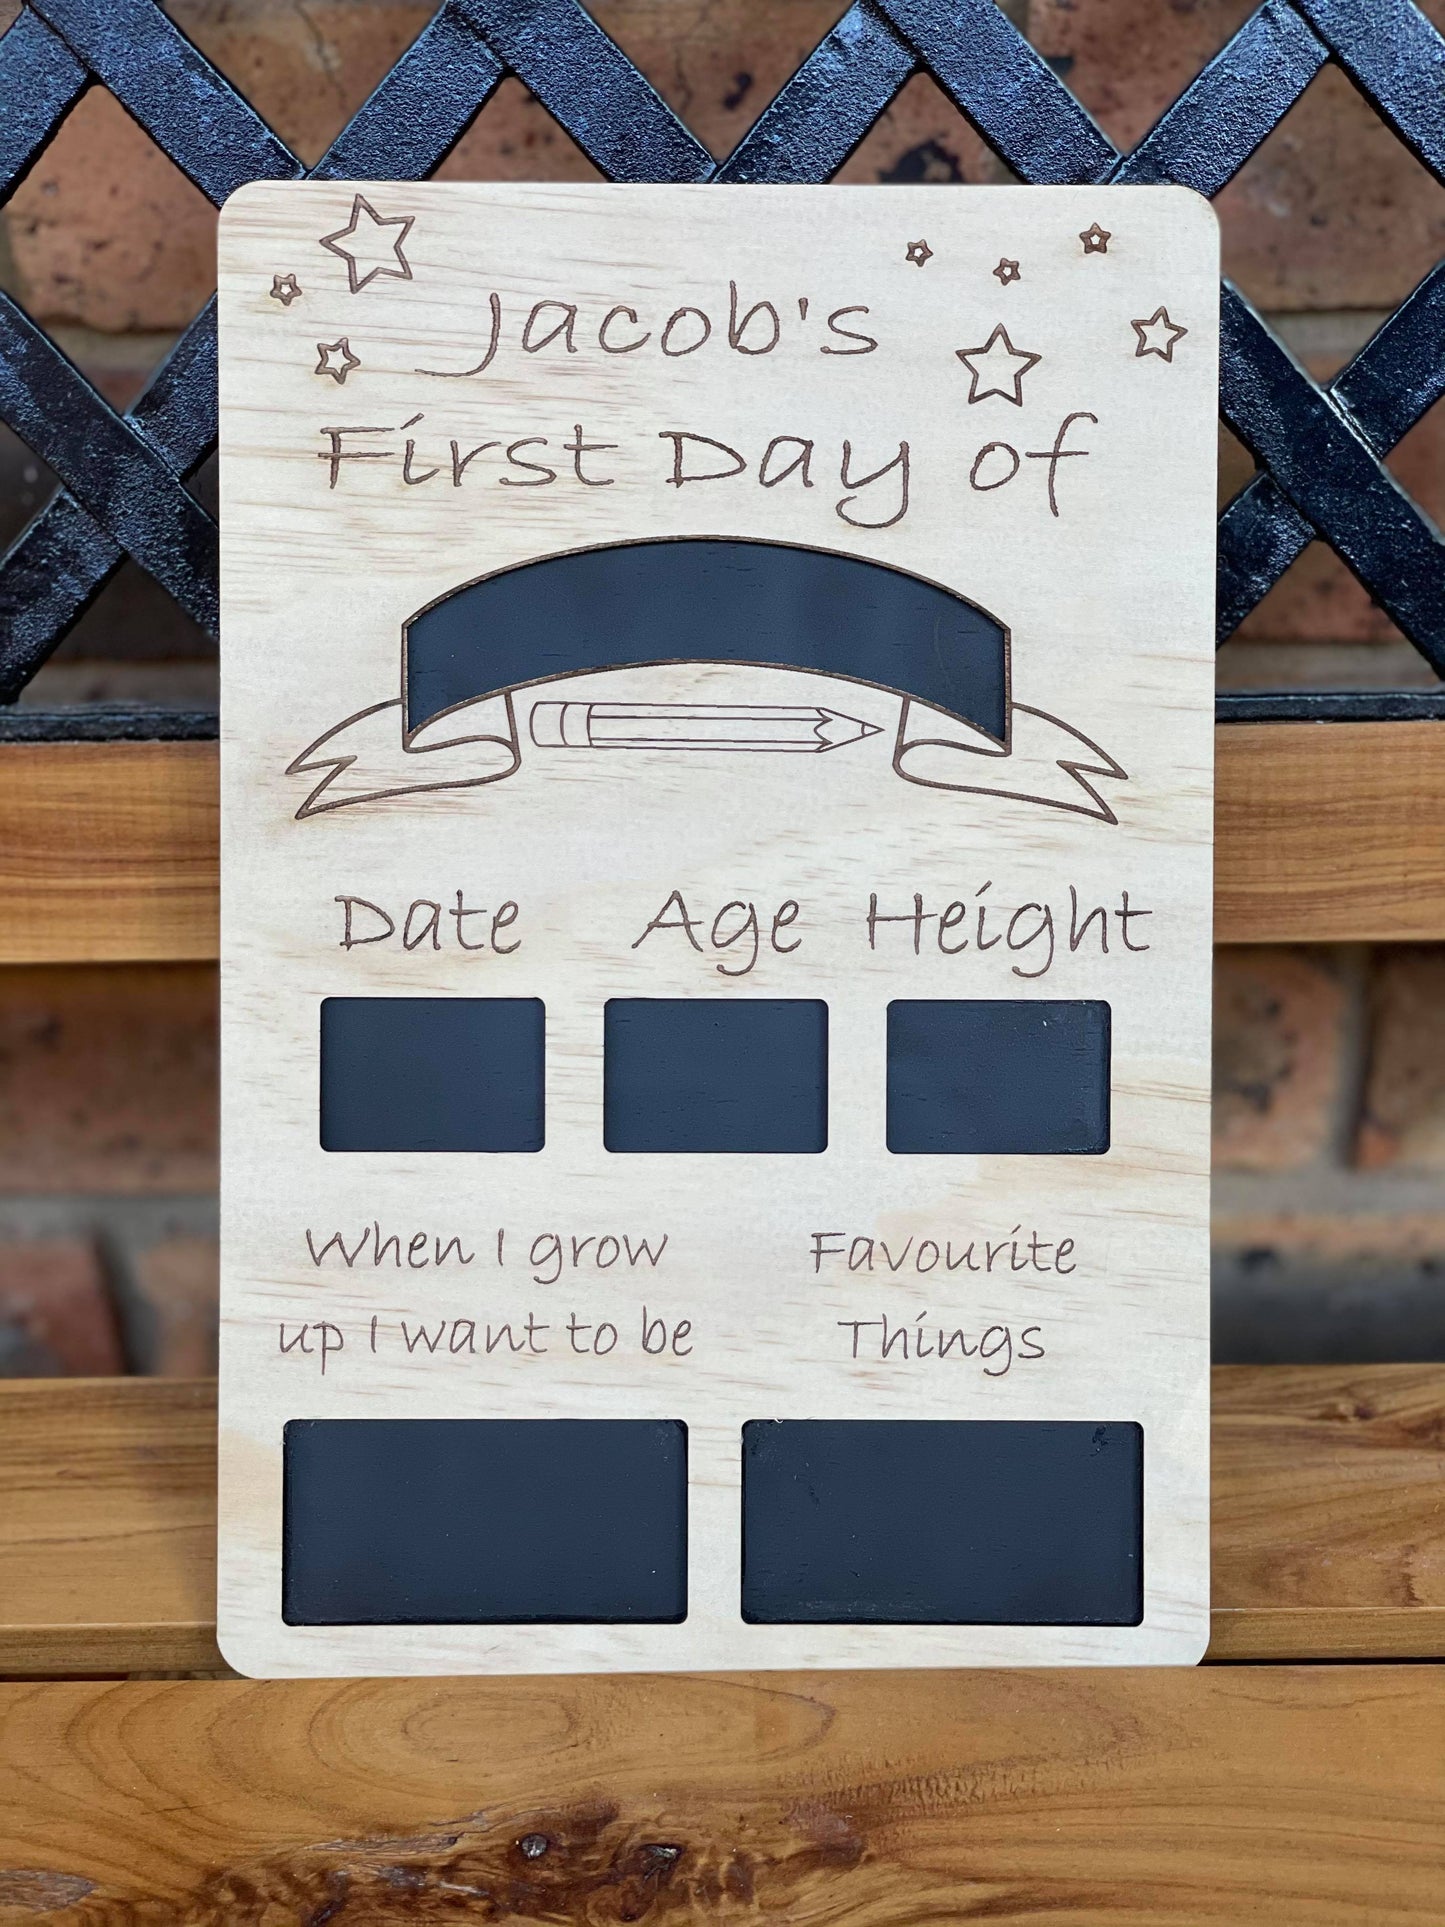 Jacob's
First Day of
Date Age Height
When I grow
up I want to be
Favourite
Things